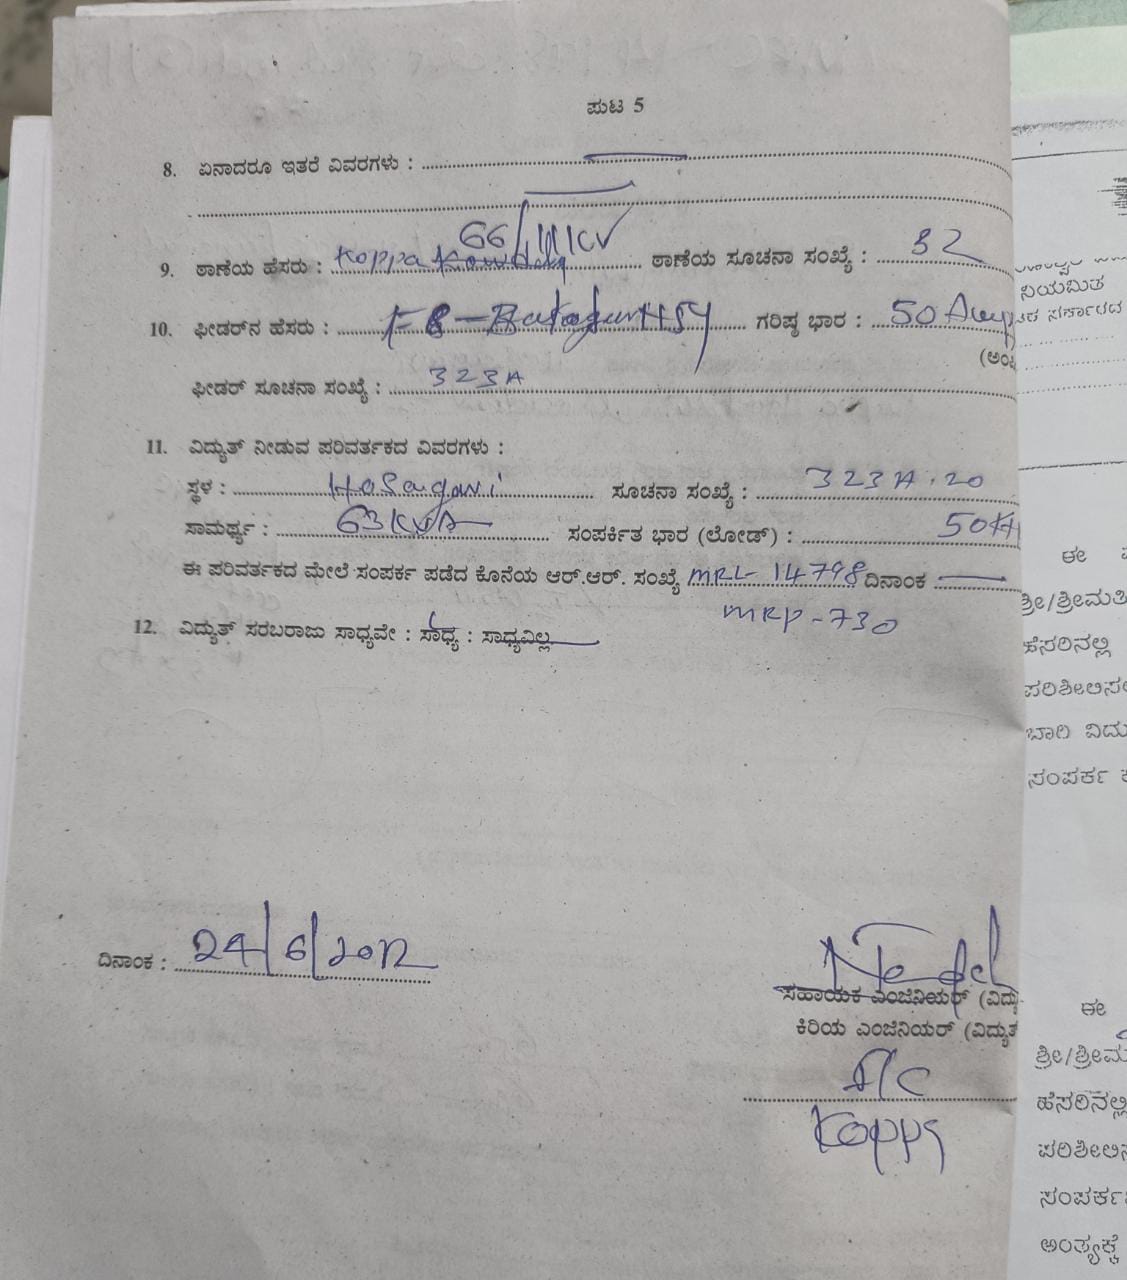 ಪುಟ 5
8. ಏನಾದರೂ ಇತರೆ ವಿವರಗಳು :
66/11KV
9. ಠಾಣೆಯ ಹೆಸರು : Koppa ಠಾಣೆಯ ಸೂಚನಾ ಸಂಖ್ಯೆ : 32
10. ಫೀಡರ್‌ನ ಹೆಸರು : ಗರಿಷ್ಠ ಭಾರ : 50 Amp
ಫೀಡರ್ ಸೂಚನಾ ಸಂಖ್ಯೆ : 323A
11. ವಿದ್ಯುತ್ ನೀಡುವ ಪರಿವರ್ತಕದ ವಿವರಗಳು :
ಸ್ಥಳ : Hosagavi ಸೂಚನಾ ಸಂಖ್ಯೆ : 323A.20
ಸಾಮರ್ಥ್ಯ : 63KVA ಸಂಪರ್ಕಿತ ಭಾರ (ಲೋಡ್) : 50H
ಈ ಪರಿವರ್ತಕದ ಮೇಲೆ ಸಂಪರ್ಕ ಪಡೆದ ಕೊನೆಯ ಆರ್.ಆರ್. ಸಂಖ್ಯೆ MRL-14798 ದಿನಾಂಕ
MRP-730
12. ವಿದ್ಯುತ್ ಸರಬರಾಜು ಸಾಧ್ಯವೇ : ಸಾಧ್ಯ : ಸಾಧ್ಯವಿಲ್ಲ
ದಿನಾಂಕ : 24/6/2012
ಸಹಾಯಕ ಎಂಜಿನಿಯರ್ (ವಿದ್ಯು
ಕಿರಿಯ ಎಂಜಿನಿಯರ್ (ವಿದ್ಯುತ್
Koppa
ನಿಯಮಿತ
ಈ
ಶ್ರೀ/ಶ್ರೀಮತಿ
ಹೆಸರಿನಲ್ಲಿ
ಸಂಪರ್ಕ
ಈ
ಶ್ರೀ/ಶ್ರೀಮ
ಹೆಸರಿನಲ್ಲಿ
ಸಂಪರ್ಕ
ಅಂತ್ಯಕ್ಕೆ